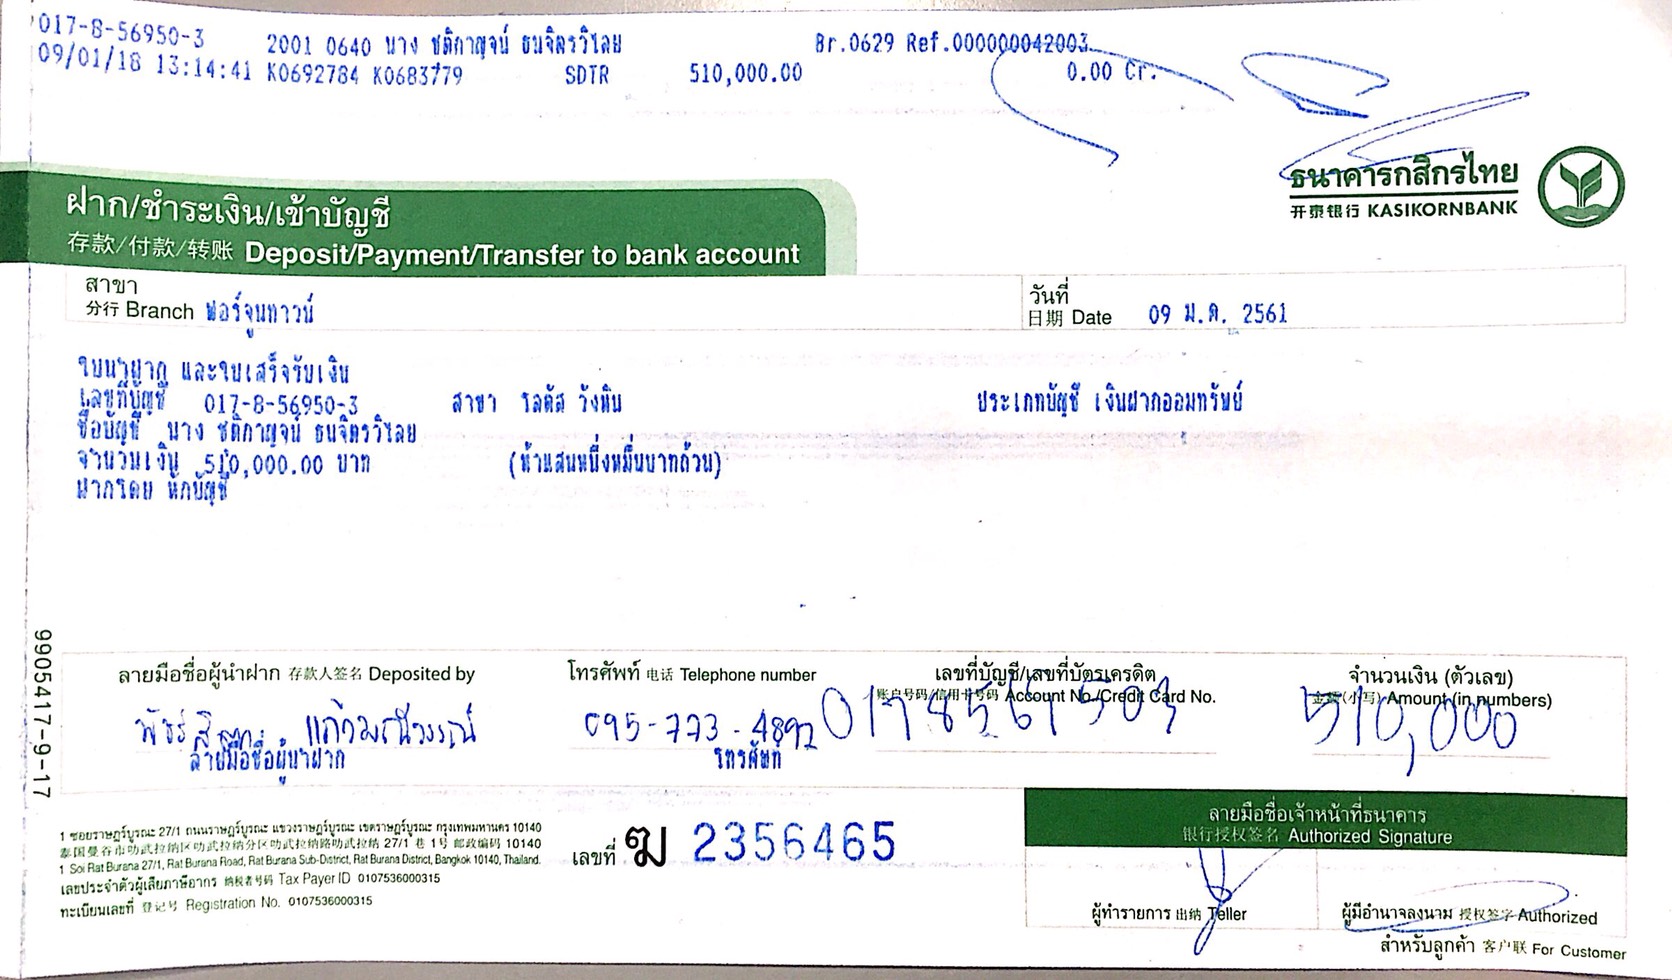 017-8-56950-3 2001 0640 นาง ชติกาญจน์ ธนจิตรวิไลย Br.0629 Ref.000000042003
09/01/18 13:14:41 K0692784 K0683779 SDTR 510,000.00 0.00 Cr.
ธนาคารกสิกรไทย
开泰银行 KASIKORNBANK
ฝาก/ชำระเงิน/เข้าบัญชี
存款/付款/转账 Deposit/Payment/Transfer to bank account
สาขา
分行 Branch ฟอร์จูนทาวน์
วันที่
日期 Date 09 ม.ค. 2561
ใบนำฝาก และใบเสร็จรับเงิน
เลขที่บัญชี 017-8-56950-3 สาขา โลตัส วังหิน ประเภทบัญชี เงินฝากออมทรัพย์
ชื่อบัญชี นาง ชติกาญจน์ ธนจิตรวิไลย
จำนวนเงิน 510,000.00 บาท (ห้าแสนหนึ่งหมื่นบาทถ้วน)
ฝากโดย หักบัญชี
9905417-9-17
ลายมือชื่อผู้นำฝาก 存款人签名 Deposited by
โทรศัพท์ 电话 Telephone number
095-773-4892
เลขที่บัญชี/เลขที่บัตรเครดิต
账户号码/信用卡号码 Account No./Credit Card No.
จำนวนเงิน (ตัวเลข)
金额(小写) Amount (in numbers)
510,000
แก้วมณีวรรณ์
ลายมือชื่อผู้นำฝาก
โทรศัพท์
1 ซอยราษฎร์บูรณะ 27/1 ถนนราษฎร์บูรณะ แขวงราษฎร์บูรณะ เขตราษฎร์บูรณะ กรุงเทพมหานคร 10140
泰国曼谷市叻武拉纳区叻武拉纳分区叻武拉纳路叻武拉纳 27/1 巷 1号 邮政编码 10140
1 Soi Rat Burana 27/1, Rat Burana Road, Rat Burana Sub-District, Rat Burana District, Bangkok 10140, Thailand.
เลขประจำตัวผู้เสียภาษีอากร 纳税者号码 Tax Payer ID 0107536000315
ทะเบียนเลขที่ 登记号 Registration No. 0107536000315
เลขที่ ฆ 2356465
ลายมือชื่อเจ้าหน้าที่ธนาคาร
银行授权签名 Authorized Signature
ผู้ทำรายการ 出纳 Teller
ผู้มีอำนาจลงนาม 授权签字 Authorized
สำหรับลูกค้า 客户联 For Customer